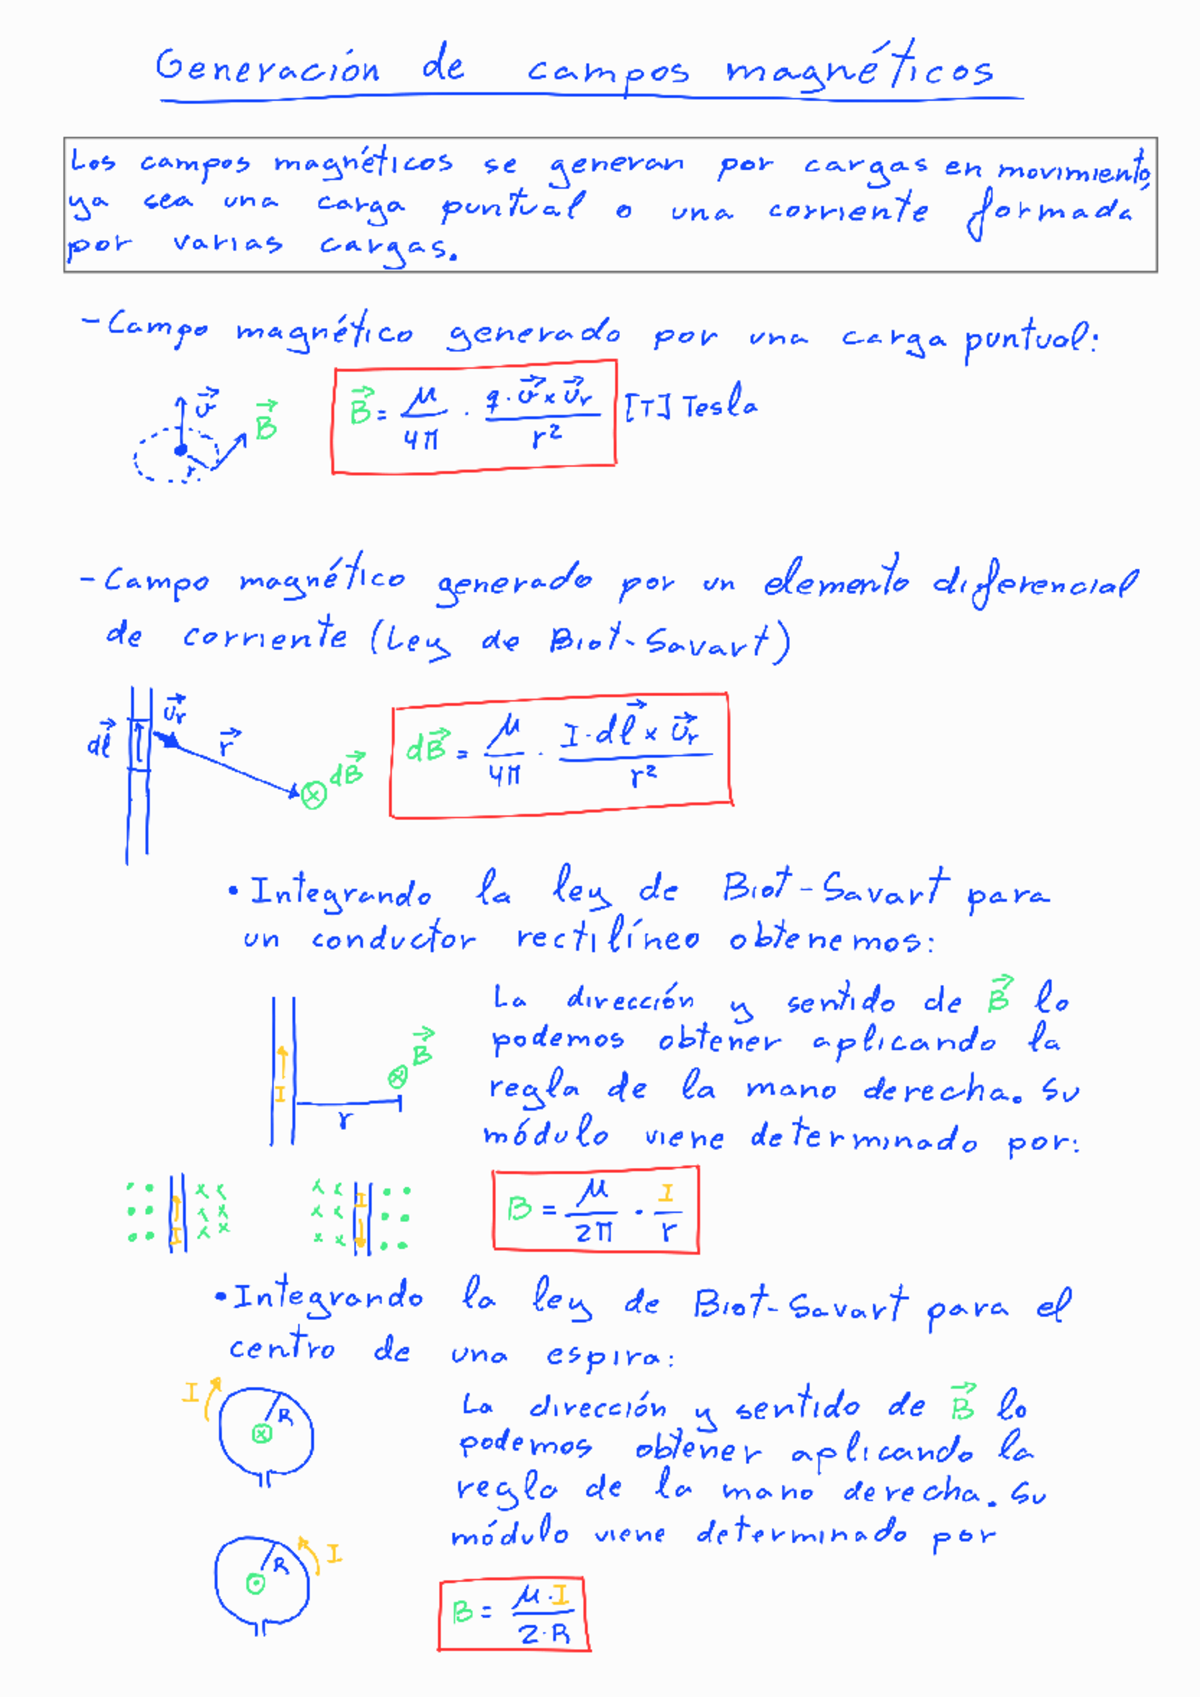 Generación de campos magnéticos
Los campos magnéticos se generan por cargas en movimiento,
ya sea una carga puntual o una corriente formada
por varias cargas.
- Campo magnético generado por una carga puntual:
v⃗
B⃗
r
B⃗ = μ/4π · q·v⃗ × u⃗r / r² [T] Tesla
- Campo magnético generado por un elemento diferencial
de corriente (Ley de Biot-Savart)
dl⃗
u⃗r
r⃗
dB⃗
dB⃗ = μ/4π · I·dl⃗ × u⃗r / r²
• Integrando la ley de Biot-Savart para
un conductor rectilíneo obtenemos:
I
r
B⃗
La dirección y sentido de B⃗ lo
podemos obtener aplicando la
regla de la mano derecha. Su
módulo viene determinado por:
I
I
B = μ/2π · I/r
• Integrando la ley de Biot-Savart para el
centro de una espira:
I
R
La dirección y sentido de B⃗ lo
podemos obtener aplicando la
regla de la mano derecha. Su
módulo viene determinado por
R
I
B = μ·I / 2·R